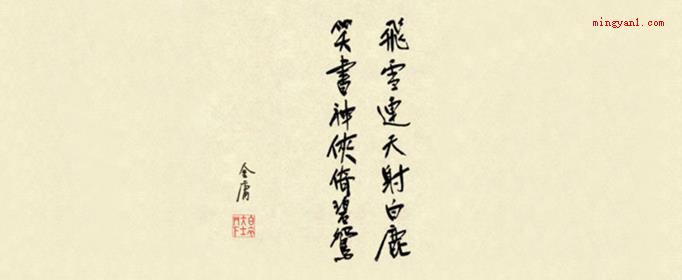 mingyan1.com
飛雪連天射白鹿
笑書神俠倚碧鴛
金庸